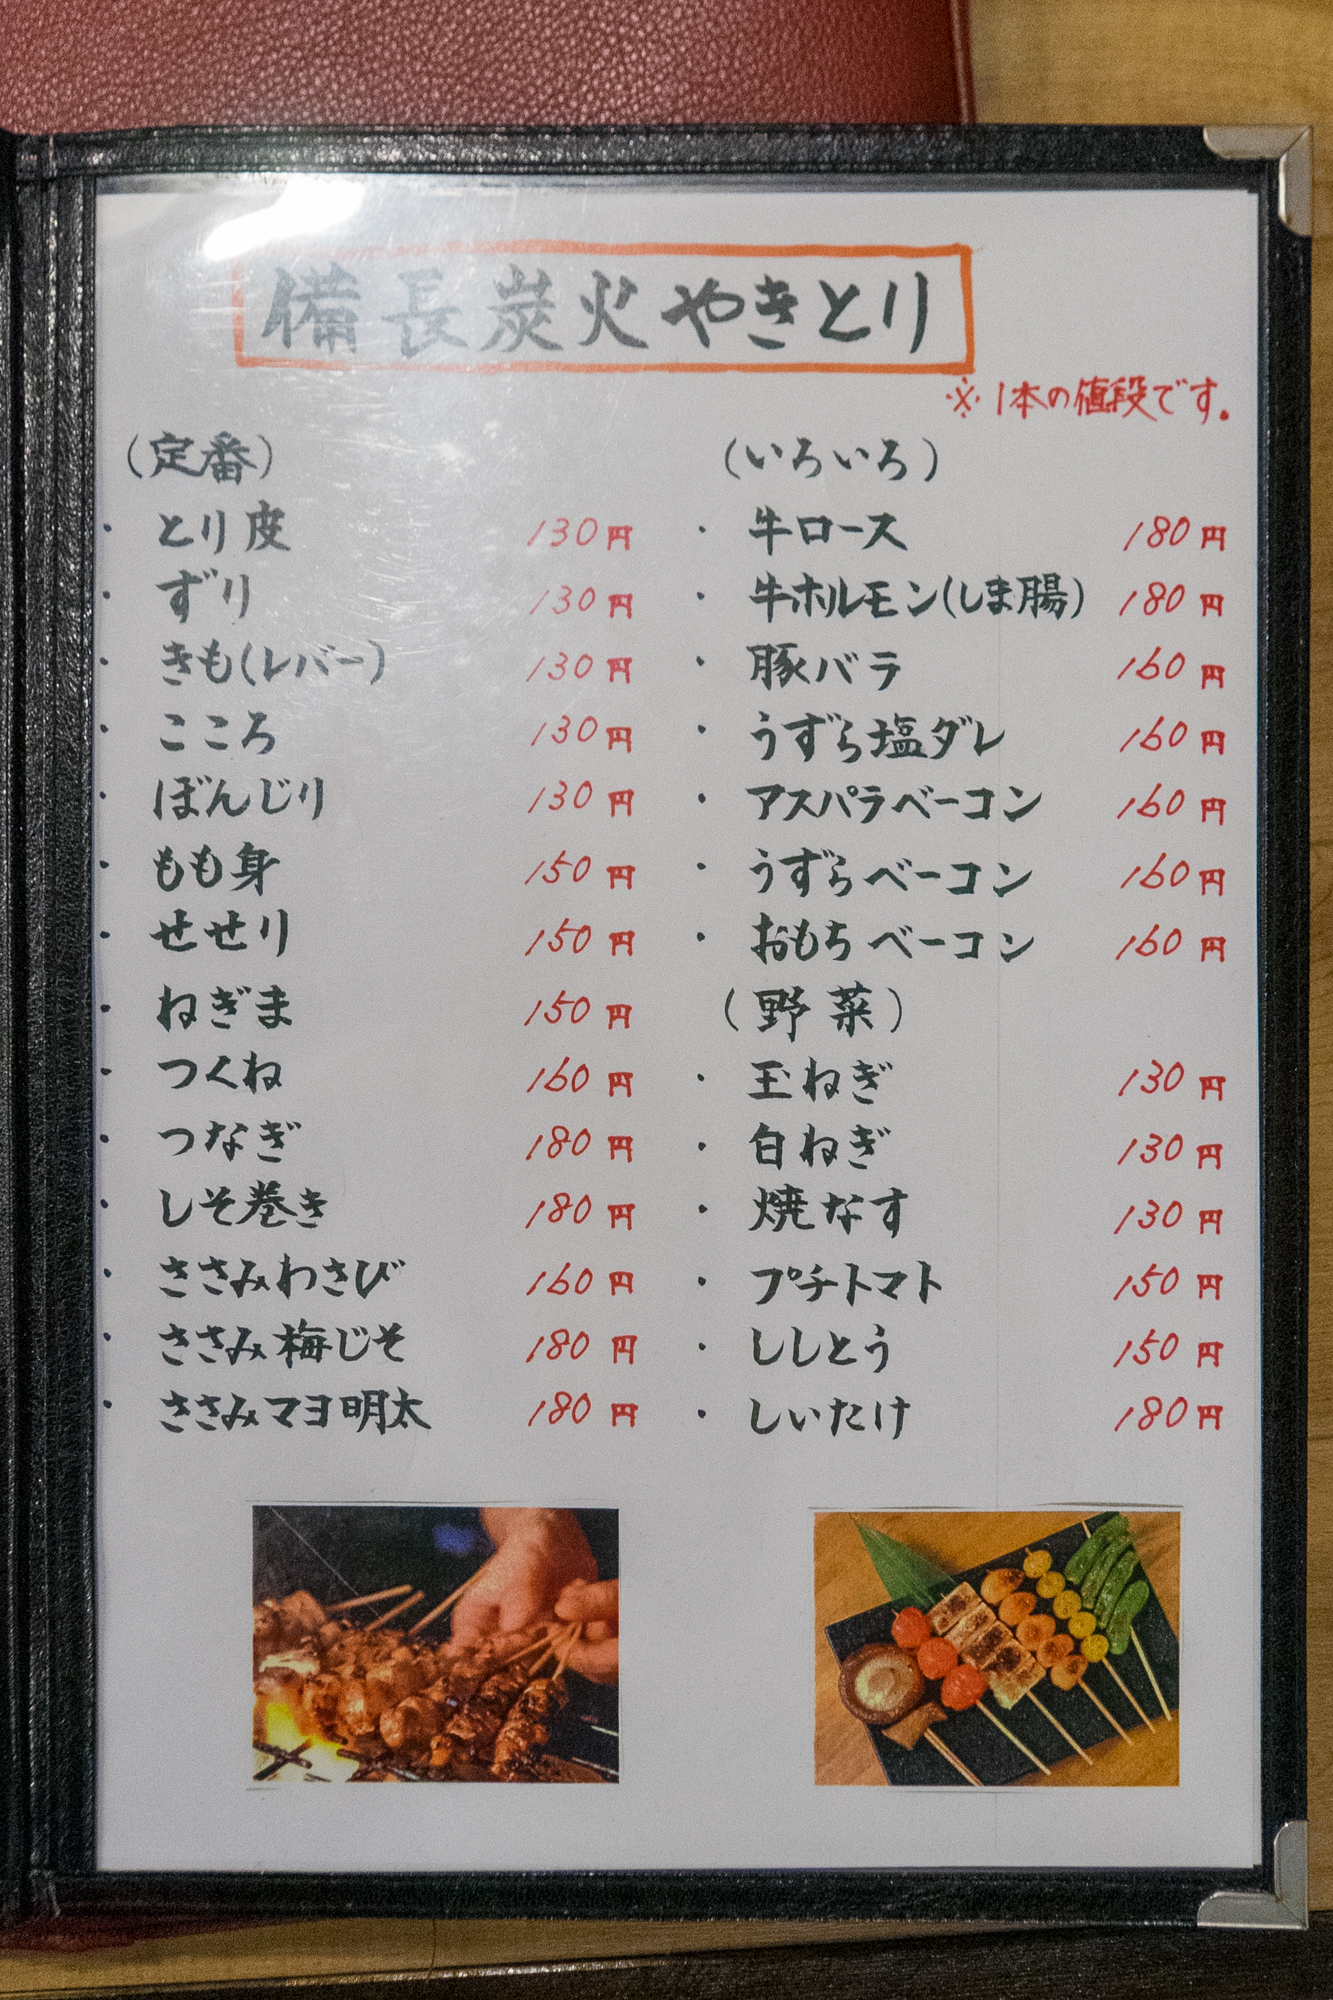 備長炭火やきとり
※1本の値段です。
(定番)
・とり皮 130円
・ずり 130円
・きも(レバー) 130円
・こころ 130円
・ぼんじり 130円
・もも身 150円
・せせり 150円
・ねぎま 150円
・つくね 160円
・つなぎ 180円
・しそ巻き 180円
・ささみわさび 160円
・ささみ梅じそ 180円
・ささみマヨ明太 180円
(いろいろ)
・牛ロース 180円
・牛ホルモン(しま腸) 180円
・豚バラ 160円
・うずら塩ダレ 160円
・アスパラベーコン 160円
・うずらベーコン 160円
・おもちベーコン 160円
(野菜)
・玉ねぎ 130円
・白ねぎ 130円
・焼なす 130円
・プチトマト 150円
・ししとう 150円
・しいたけ 180円